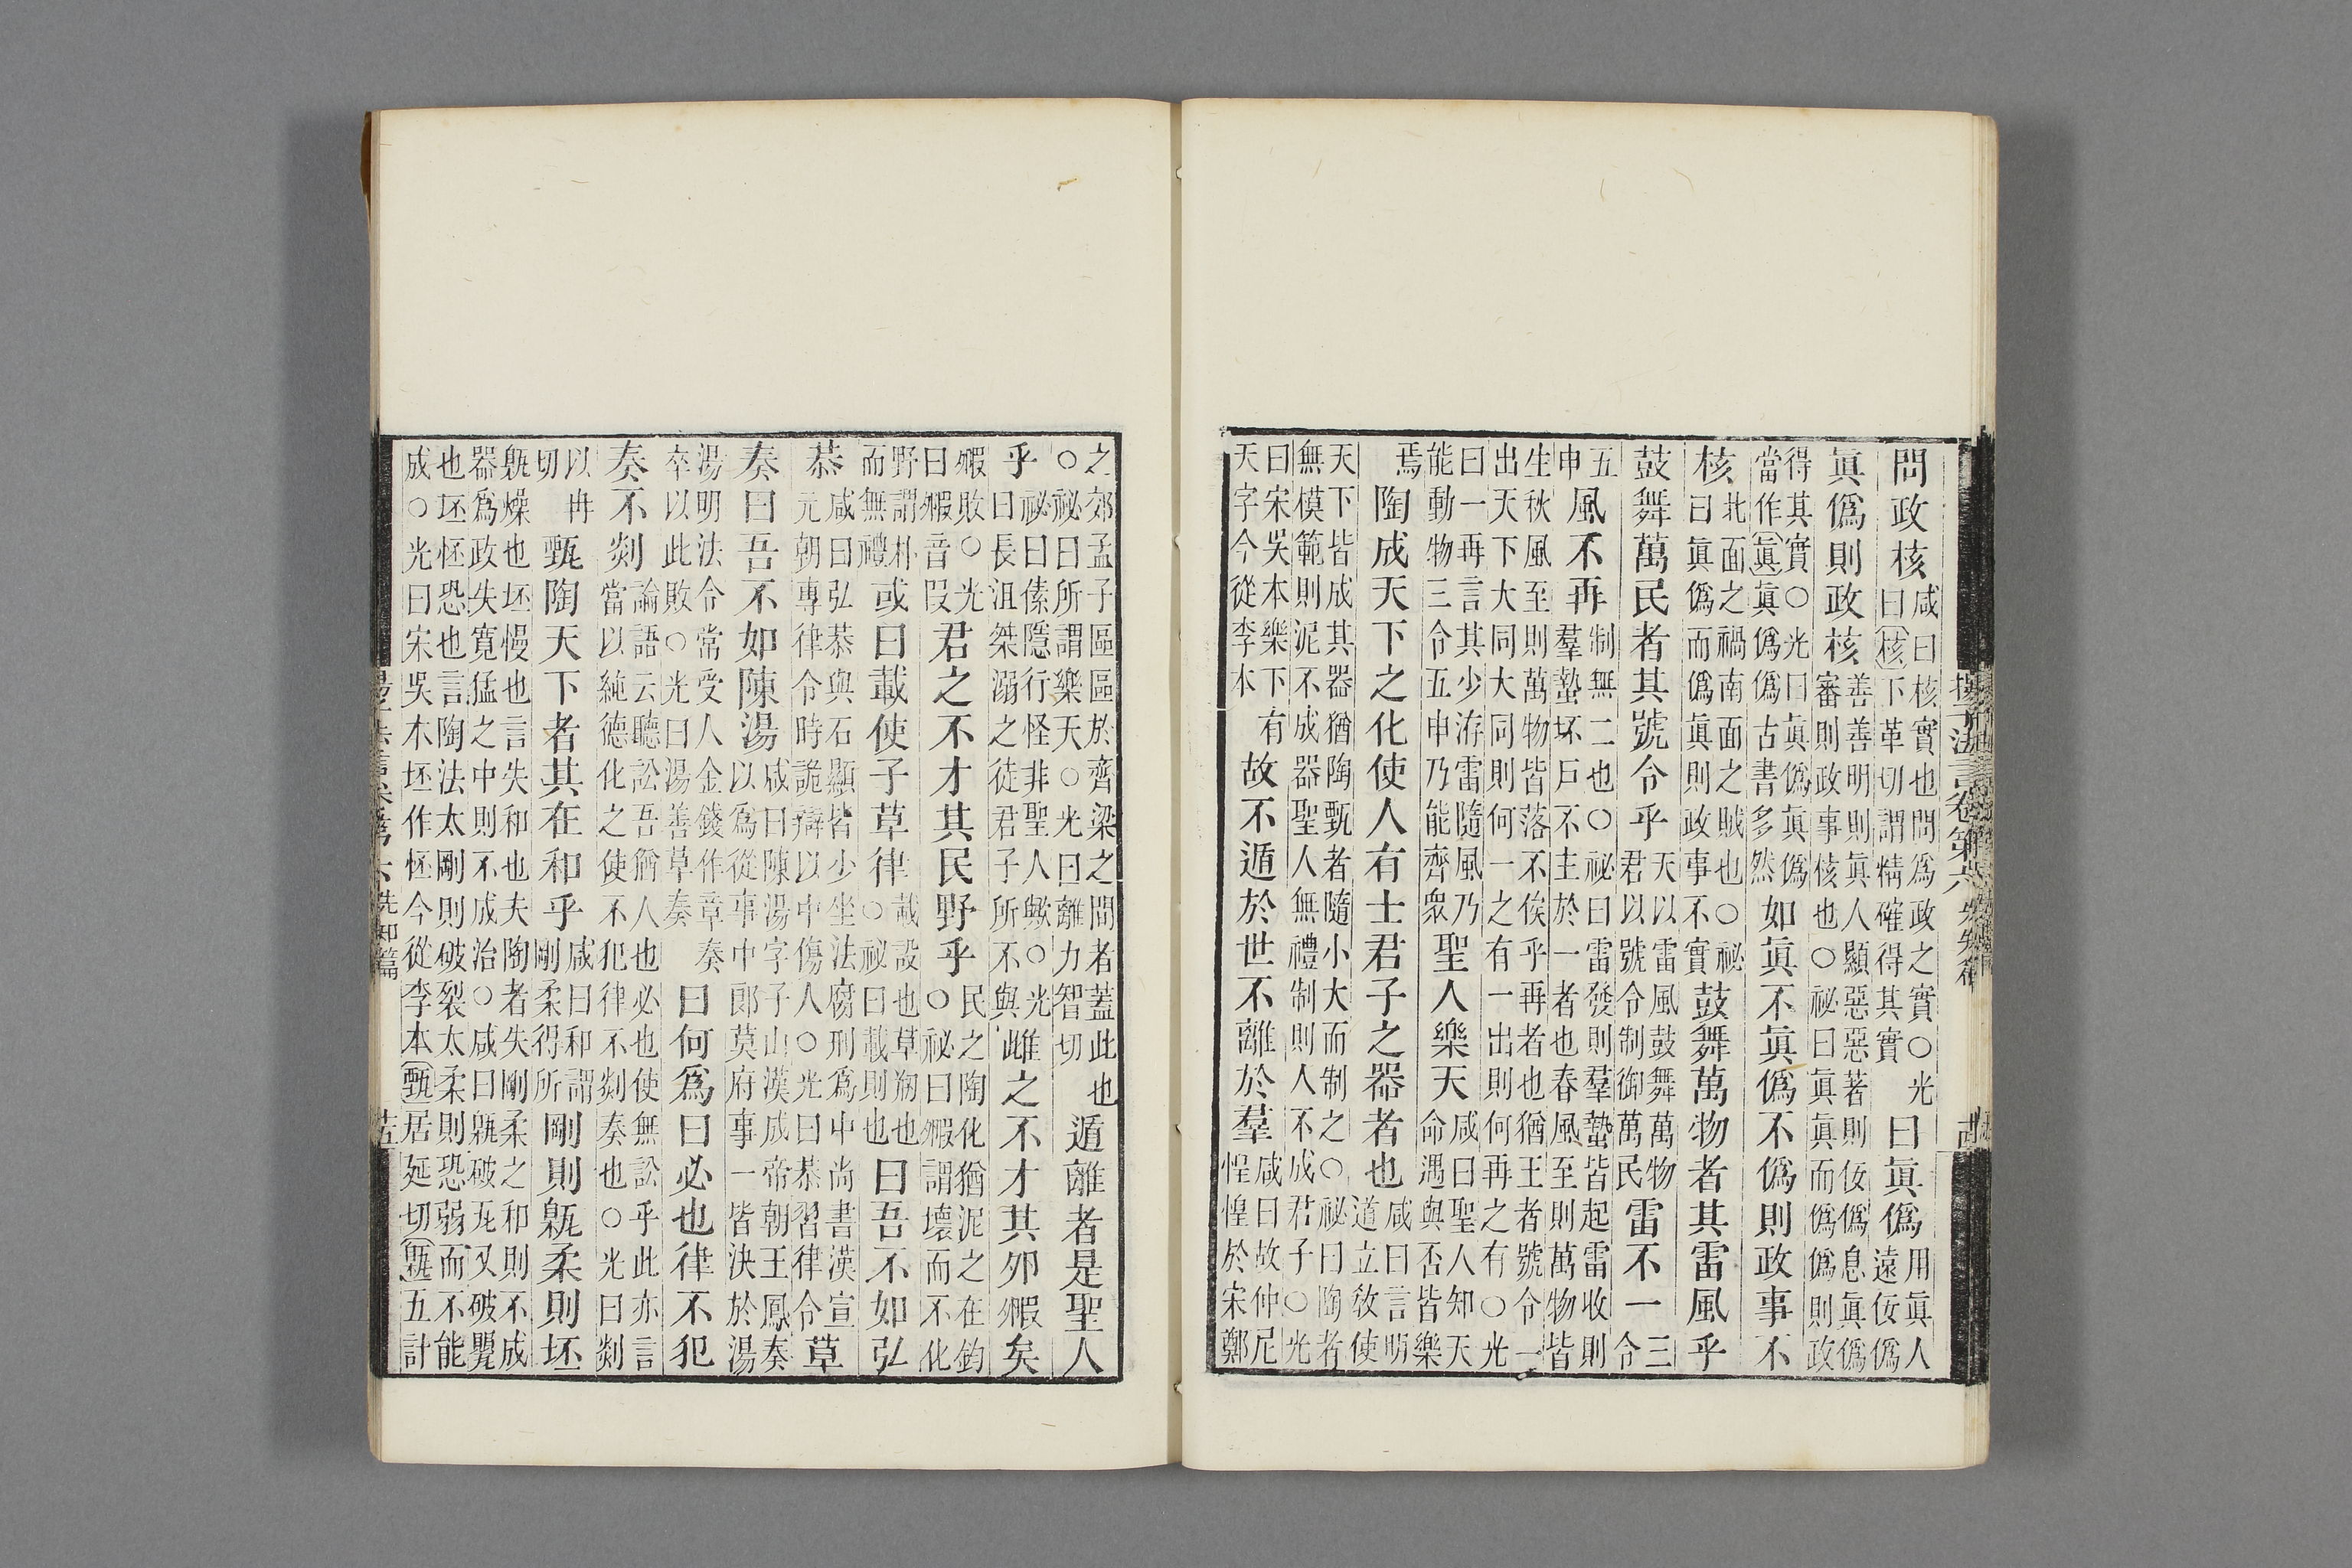 問政核咸曰核實也問爲政之實○光曰核下革切謂精確得其實曰眞僞用眞人遠佞僞
眞僞則政核善善明則眞人顯惡惡著則佞僞息眞僞審則政事核也○祕曰眞眞而僞僞則政
得其實○光曰眞僞眞僞當作眞眞僞僞古書多然如眞不眞僞不僞則政事不
核北面之禍南面之賊也○祕曰眞僞而僞眞則政事不實鼓舞萬物者其雷風乎
鼓舞萬民者其號令乎天以雷風鼓舞萬物君以號令制御萬民雷不一三令
五申風不再制無二也○祕曰雷發則羣蟄皆起雷收則羣蟄坏戶不主於一者也春風至則萬物皆
生秋風至則萬物皆落不俟乎再者也猶王者號令一出天下大同大同則何一之有一出則何再之有○光
曰一再言其少洊雷隨風乃能動物三令五申乃能齊衆聖人樂天咸曰聖人知天命遇與否皆樂
焉陶成天下之化使人有士君子之器者也咸曰言明道立敎使
天下皆成其器猶陶甄者隨小大而制之○祕曰陶者無模範則泥不成器聖人無禮制則人不成君子○光
曰宋吳本樂下有天字今從李本故不遁於世不離於羣咸曰故仲尼惶惶於宋鄭
揚子法言卷第六 先知篇
之郊孟子區區於齊梁之間者蓋此也○祕曰所謂樂天○光曰離力智切遁離者是聖人
乎祕曰傃隱行怪非聖人歟○光曰長沮桀溺之徒君子所不與雌之不才其卵毈矣
毈敗○光曰毈音叚君之不才其民野乎民之陶化猶泥之在鈞○祕曰毈謂壞而不化
野謂朴而無禮或曰載使子草律載設也草剏也○祕曰載則也曰吾不如弘
恭咸曰弘恭與石顯皆少坐法腐刑爲中尚書漢宣元朝專律令時詭辯以中傷人○光曰恭習律令草
奏曰吾不如陳湯咸曰陳湯字子山漢成帝朝王鳳奏以爲從事中郎莫府事一皆決於湯
湯明法令常受人金錢作章奏卒以此敗○光曰湯善草奏曰何爲曰必也律不犯
奏不剡論語云聽訟吾猶人也必也使無訟乎此亦言當以純德化之使不犯律不剡奏也○光曰剡
以冉切甄陶天下者其在和乎咸曰和謂剛柔得所剛則甈柔則坯
甈燥也坯慢也言失和也夫陶者失剛柔之和則不成器爲政失寬猛之中則不成治○咸曰甈破瓦又破甖
也坯怌恐也言陶法太剛則破裂太柔則恐弱而不能成○光曰宋吳本坯作怌今從李本甄居延切甈五計
揚子法言卷第六 先知篇